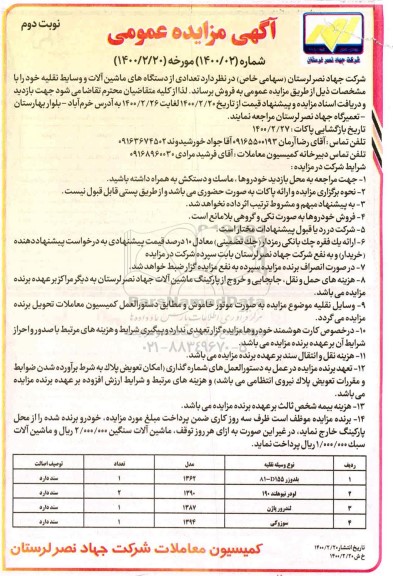 نوبت دوم
آگهی مزایده عمومی
شرکت جهاد نصر لرستان
شماره (۱۴۰۰/۰۲) مورخه (۱۴۰۰/۲/۲۰)
شرکت جهاد نصر لرستان (سهامی خاص) در نظر دارد تعدادی از دستگاه های ماشین آلات و وسایط نقلیه خود را با
مشخصات ذیل از طریق مزایده عمومی به فروش برساند. لذا از کلیه متقاضیان محترم تقاضا می شود جهت بازدید
و دریافت اسناد مزایده و پیشنهاد قیمت از تاریخ ۱۴۰۰/۲/۲۰ لغایت ۱۴۰۰/۲/۲۶ به آدرس خرم آباد - بلوار بهارستان
- تعمیرگاه جهاد نصر لرستان مراجعه نمایند.
تاریخ بازگشایی پاکات : ۱۴۰۰/۲/۲۷
تلفن تماس : آقای رضا آرمان ۰۹۱۶۵۵۰۰۱۹۳ آقا جواد خورشیدوند ۰۹۱۶۳۶۷۴۵۰۲
تلفن تماس دبیرخانه کمیسیون معاملات : آقای فرشید مرادی ۰۹۱۶۸۹۶۰۰۳۰
شرایط شرکت در مزایده :
۱- جهت مراجعه به محل بازدید خودروها ، ماسک و دستکش به همراه داشته باشید.
۲- نحوه برگزاری مزایده و ارائه پاکات به صورت حضوری می باشد و از طریق پستی قابل قبول نیست.
۳- به پیشنهاد مبهم و مشروط ترتیب اثر داده نخواهد شد.
۴- فروش خودروها به صورت تکی و گروهی بلامانع است.
۵- شرکت در رد یا قبول پیشنهادات مختار است
۶- ارائه یک فقره چک بانکی رمزدار(چک تضمینی) معادل ۱۰ درصد قیمت پیشنهادی به درخواست پیشنهاد دهنده
(خریدار) و به نفع شرکت جهاد نصر لرستان بابت سپرده شرکت در مزایده
۷- در صورت انصراف برنده مزایده سپرده به نفع مزایده گزار ضبط خواهد شد.
۸- هزینه های حمل و نقل ، جابجایی و خروج از پارکینگ ماشین آلات جهاد نصر لرستان به دیگر مراکز بر عهده برنده
مزایده می باشد.
۹- وسایل نقلیه موضوع مزایده به صورت موتور خاموش و مطابق دستورالعمل کمیسیون معاملات تحویل برنده
مزایده می گردد.
۱۰- درخصوص کارت هوشمند خودروها مزایده گزار تعهدی ندارد و پیگیری شرایط و هزینه های مرتبط با صدور و احراز
شرایط آن بر عهده برنده مزایده می باشد.
۱۱- هزینه نقل و انتقال سند بر عهده برنده مزایده می باشد.
۱۲- تعهد برنده مزایده در عمل به دستورالعمل های شماره گذاری (امکان تعویض پلاک به شرط برآورده شدن ضوابط
و مقررات تعویض پلاک نیروی انتظامی می باشد) و هزینه های مرتبط و شرایط ارزش افزوده بر عهده برنده مزایده
می باشد.
۱۳- هزینه بیمه شخص ثالث بر عهده برنده مزایده می باشد.
۱۴- برنده مزایده موظف است ظرف سه روز کاری ضمن پرداخت مبلغ مورد مزایده، خودرو برنده شده را از محل
پارکینگ خارج نماید، در غیر این صورت به ازای هر روز توقف، ماشین آلات سنگین ۲/۰۰۰/۰۰۰ ریال و ماشین آلات
سبک ۱/۰۰۰/۰۰۰ ریال پرداخت نماید.
ردیف نوع وسیله نقلیه مدل تعداد توصیف اصالت
۱ بلدوزر D۱۵۵-۸۱ ۱۳۶۲ ۱ سند دارد
۲ لودر نیوهلند ۱۹۰ ۱۳۹۰ ۲ سند دارد
۳ لندرور پاژن ۱۳۸۷ ۱ سند دارد
۴ سوزوکی ۱۳۹۴ ۱ سند دارد
تاریخ انتشار ۱۴۰۰/۲/۲۰
خ ش ۱۴۰۰/۲/۲۰
کمیسیون معاملات شرکت جهاد نصر لرستان
۰۲۱-۸۸۳۴۹۶۷۰-۵